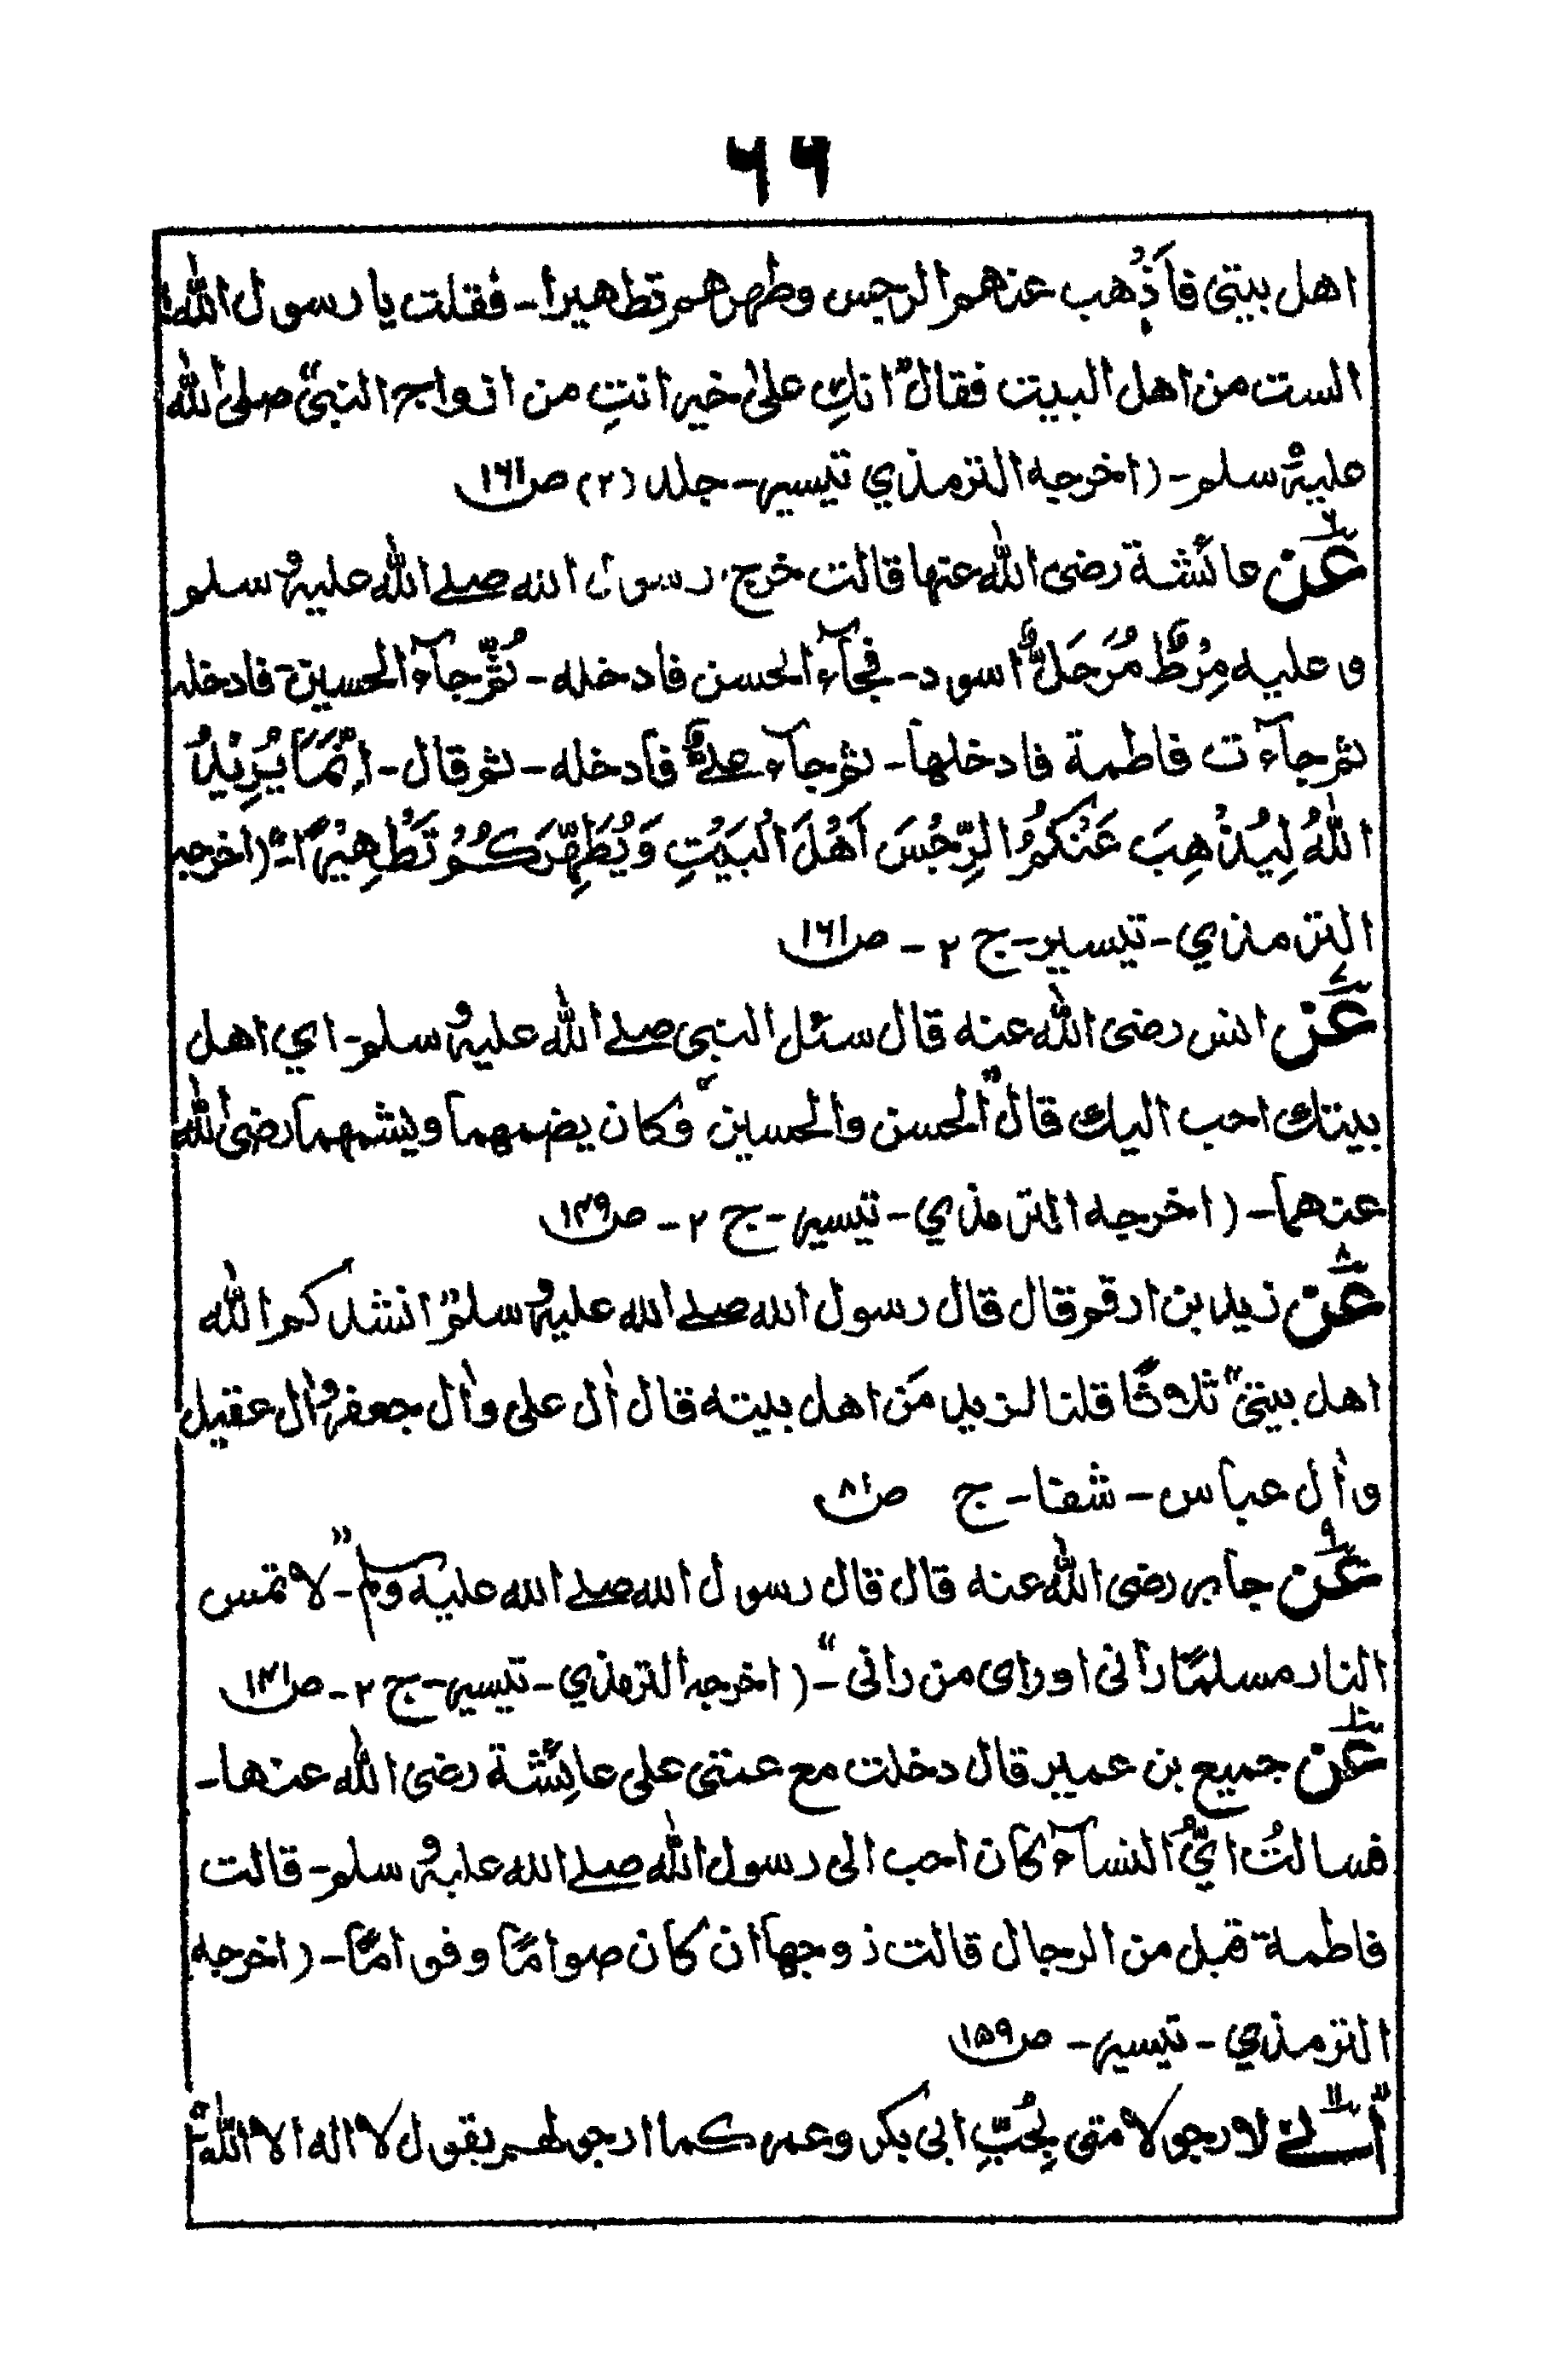 ۶۶
اهل بيتى فاَذْهب عنهم الرجس وطهرهم تطهيرا۔ فقلت يا رسول الله!
الست من اهل البيت فقال" انكِ علىٰ خير انتِ من ازواج النبىّ" صلى الله
عليه وسلم۔ (اخرجه الترمذي تيسير۔ جلد (۲) ص۱۶۱
۶ عَن عائشة رضى الله عنها قالت خرج رسول الله صلے الله عليه وسلم
وعليه مِرْطٌ مُرَحَلٌ اسود۔ فجآء الحسن فادخله۔ ثُمّ جآء الحسين فادخله
ثم جآءت فاطمة فادخلها۔ ثم جآء علىٌّ فادخله۔ ثم قال۔ اِنَّمَا يُرِيْدُ
اللهُ لِيُذْهِبَ عَنْكُمُ الرِّجْسَ اَهْلَ الْبَيْتِ وَيُطَهِّرَكُمْ تَطْهِيْرًا۔" (اخرجه
الترمذي۔ تيسير۔ ج ۲ ۔ ص۱۶۱
۷ عَن انس رضى الله عنه قال سئل النبى صلے الله عليه وسلم۔ اي اهل
بيتك احب اليك قال "الحسن والحسين" وكان يضمهما ويشمهما رضى الله
عنهما۔ (اخرجه الترمذي۔ تيسير۔ ج ۲ ۔ ص۱۴۹
۸ عَن زيد بن ارقم قال قال رسول الله صلے الله عليه وسلم" انشدكم الله
اهل بيتى" ثلاثًا قلنا لزيد مَن اهل بيته قال اٰل على واٰل جعفر واٰل عقيل
واٰل عباس۔ شفا۔ ج ص۸۱
۹ عَن جابر رضى الله عنه قال قال رسول الله صلے الله عليه وسلم۔ "لا تمس
النار مسلمًا رانى او راى من رانى"۔ (اخرجه الترمذي۔ تيسير۔ ج ۲ ۔ ص۱۴۱
۱۰ عَن جميع بن عمير قال دخلت مع عمتى على عائشة رضى الله عنها۔
فسالتُ اىُّ النسآء كان احب الى رسول الله صلے الله عليه وسلم۔ قالت
فاطمة قبل من الرجال قالت زوجها ان كان صوامًا وقوامًا۔ (اخرجه
الترمذي۔ تيسير۔ ص۱۵۹
۱۱ "اِنّے لارجو لامتى بِحُبِّ ابى بكر وعمر كما ارجو لهم بقول لا اله الا الله"